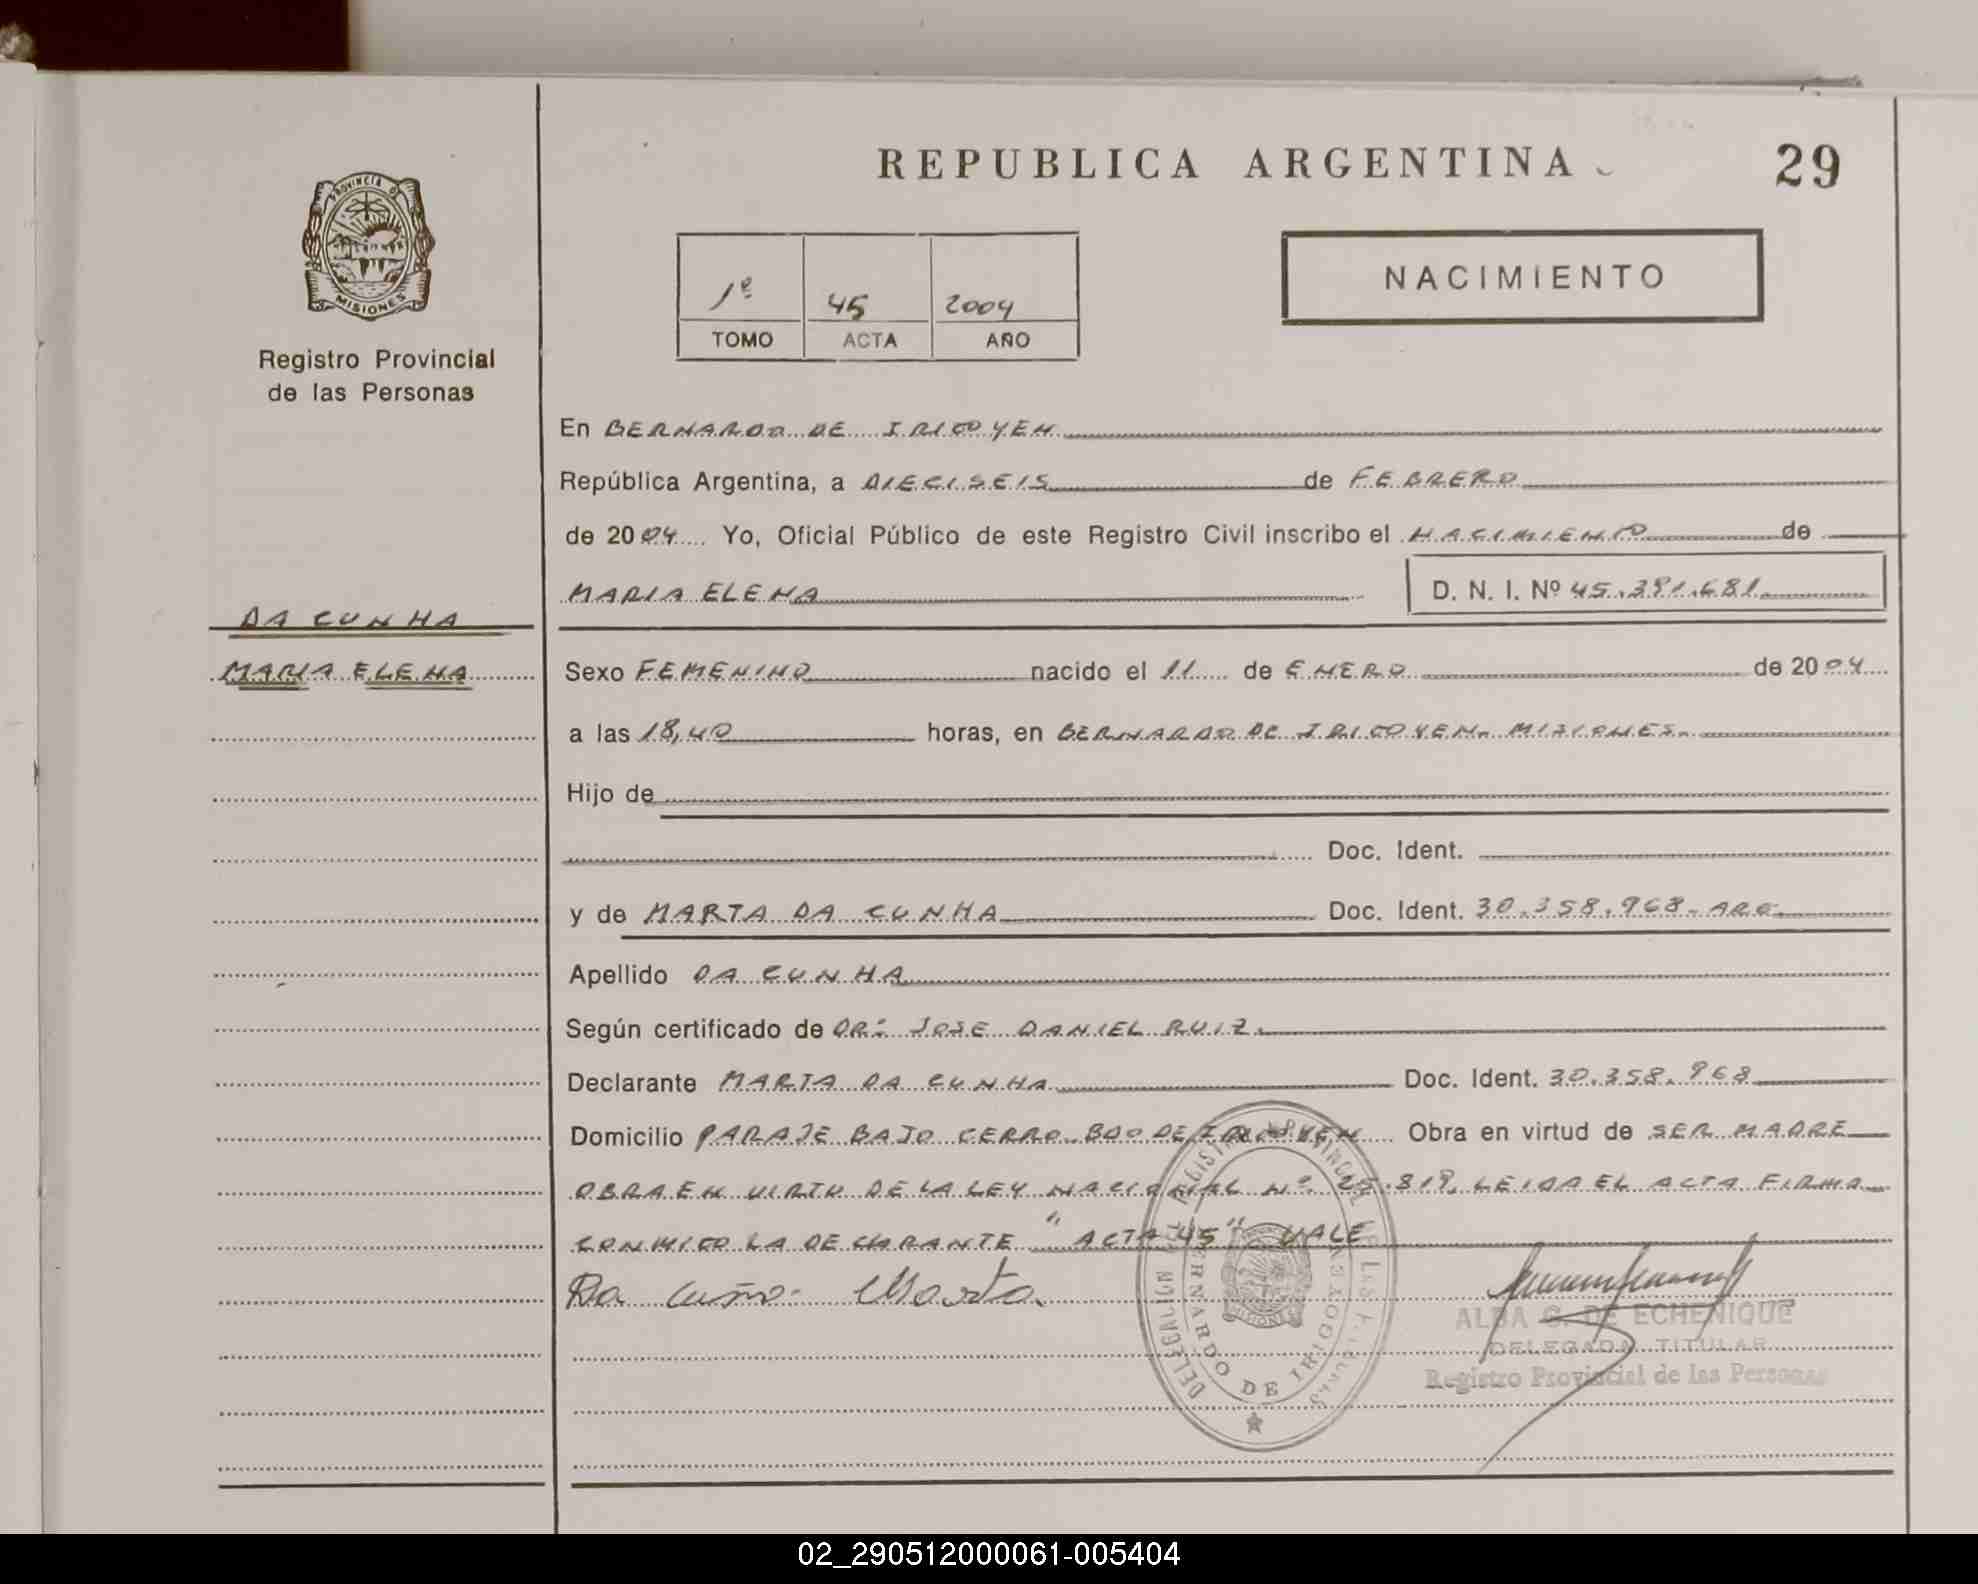 REPUBLICA ARGENTINA
29
PROVINCIA DE
MISIONES
Registro Provincial
de las Personas
1º 45 2004
TOMO ACTA AÑO
NACIMIENTO
En BERNARDO DE IRIGOYEN
República Argentina, a DIECISEIS de FEBRERO
de 2004 Yo, Oficial Público de este Registro Civil inscribo el NACIMIENTO de
MARIA ELENA D. N. I. Nº 45.391.681
DA CUNHA
MARIA ELENA
Sexo FEMENINO nacido el 11 de ENERO de 2004
a las 18,40 horas, en BERNARDO DE IRIGOYEN- MISIONES-
Hijo de
Doc. Ident.
y de MARTA DA CUNHA Doc. Ident. 30.358.968- ARG-
Apellido DA CUNHA
Según certificado de DR: JOSE DANIEL RUIZ-
Declarante MARTA DA CUNHA Doc. Ident. 30.358.968
Domicilio PARAJE BAJO CERRO-BDO DE IRIGOYEN Obra en virtud de SER MADRE
OBRA EN VIRTU DE LA LEY NACIONAL Nº 25.819, LEIDA EL ACTA FIRMA
CONMIGO LA DECLARANTE "ACTA 45" VALE
Da Cuña Marta
DELEGACION DEL REGISTRO PROVINCIAL DE LAS PERSONAS
BERNARDO DE IRIGOYEN
MISIONES
ALBA G. DE ECHENIQUE
DELEGADA TITULAR
Registro Provincial de las Personas
02_290512000061-005404